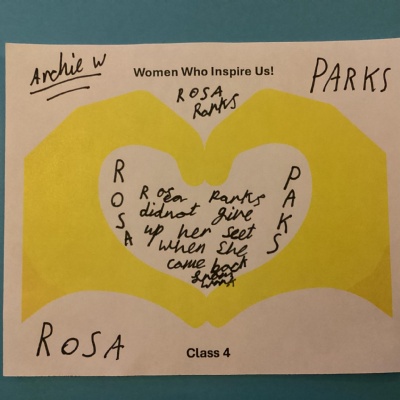 Archie W
Women Who Inspire Us!
PARKS
ROSA
Parks
ROSA
PAKS
Rosa Parks
didnot give
up her seet
when she
came back
from
work
ROSA
Class 4